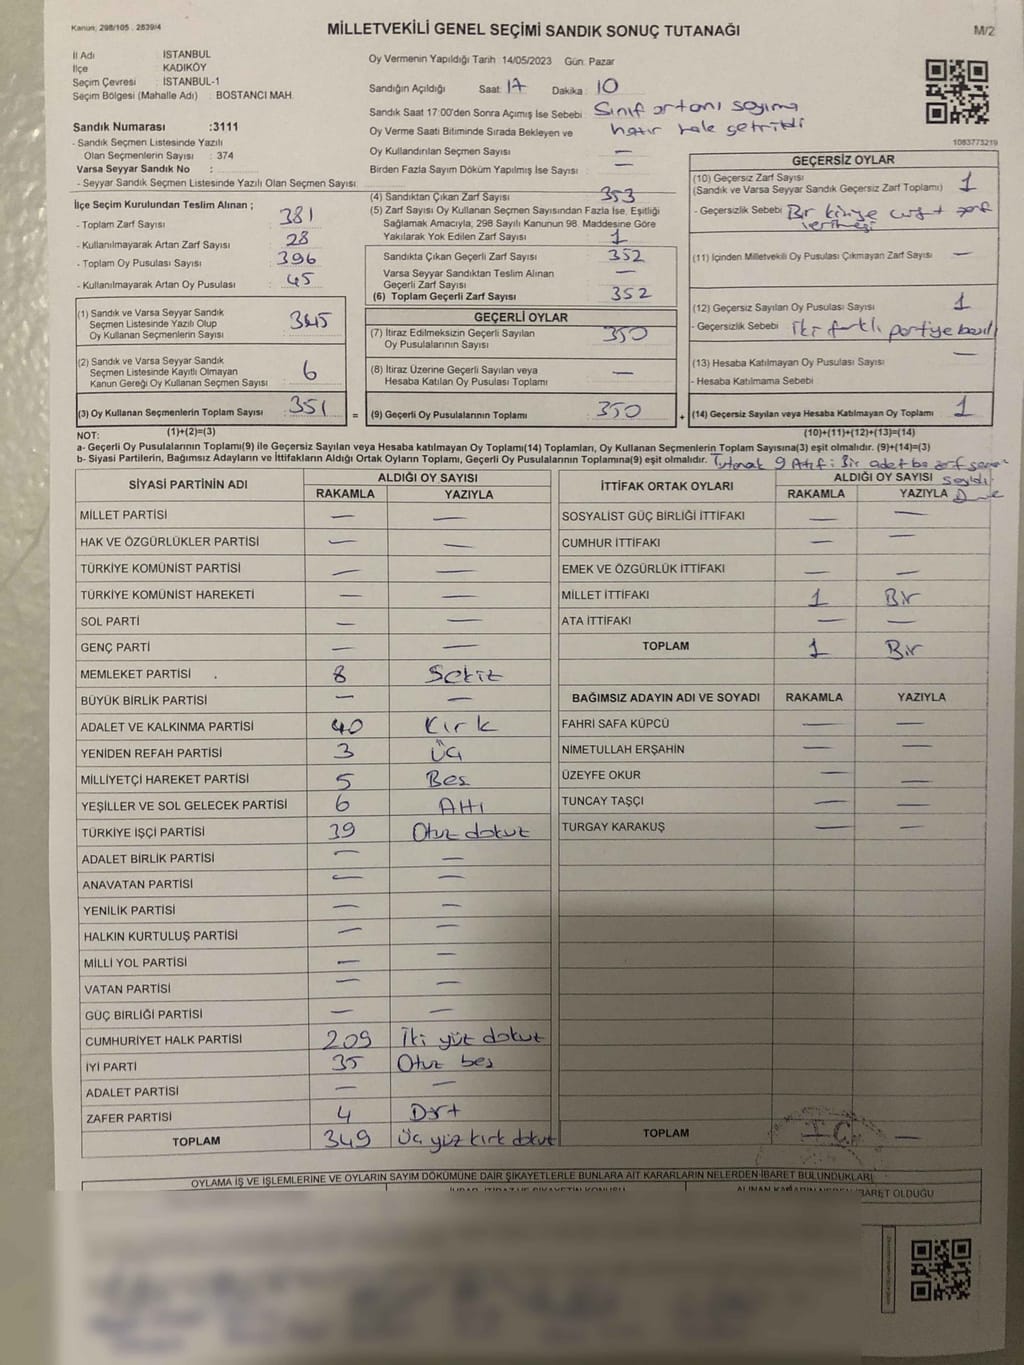 Kanun; 298/105 . 2839/4
MİLLETVEKİLİ GENEL SEÇİMİ SANDIK SONUÇ TUTANAĞI
M/2
İl Adı : İSTANBUL
İlçe : KADIKÖY
Seçim Çevresi : İSTANBUL-1
Seçim Bölgesi (Mahalle Adı) : BOSTANCI MAH.
Sandık Numarası :3111
- Sandık Seçmen Listesinde Yazılı
Olan Seçmenlerin Sayısı : 374
Varsa Seyyar Sandık No :
- Seyyar Sandık Seçmen Listesinde Yazılı Olan Seçmen Sayısı:
Oy Vermenin Yapıldığı Tarih :14/05/2023 Gün: Pazar
Sandığın Açıldığı Saat: 17 Dakika: 10
Sandık Saat 17:00'den Sonra Açımış İse Sebebi Sınıf ortanı sayıma
Oy Verme Saati Bitiminde Sırada Bekleyen ve hazır hale getirildi
Oy Kullandırılan Seçmen Sayısı —
Birden Fazla Sayım Döküm Yapılmış İse Sayısı : —
1083773219
İlçe Seçim Kurulundan Teslim Alınan ;
- Toplam Zarf Sayısı : 381
- Kullanılmayarak Artan Zarf Sayısı : 28
- Toplam Oy Pusulası Sayısı : 396
- Kullanılmayarak Artan Oy Pusulası : 45
(1) Sandık ve Varsa Seyyar Sandık
Seçmen Listesinde Yazılı Olup
Oy Kullanan Seçmenlerin Sayısı 345
(2) Sandık ve Varsa Seyyar Sandık
Seçmen Listesinde Kayıtlı Olmayan
Kanun Gereği Oy Kullanan Seçmen Sayısı 6
(3) Oy Kullanan Seçmenlerin Toplam Sayısı 351 =
(1)+(2)=(3)
(4) Sandıktan Çıkan Zarf Sayısı 353
(5) Zarf Sayısı Oy Kullanan Seçmen Sayısından Fazla İse, Eşitliği
Sağlamak Amacıyla; 298 Sayılı Kanunun 98. Maddesine Göre
Yakılarak Yok Edilen Zarf Sayısı 1
Sandıkta Çıkan Geçerli Zarf Sayısı 352
Varsa Seyyar Sandıktan Teslim Alınan
Geçerli Zarf Sayısı —
(6) Toplam Geçerli Zarf Sayısı 352
GEÇERLİ OYLAR
(7) İtiraz Edilmeksizin Geçerli Sayılan
Oy Pusulalarının Sayısı 350
(8) İtiraz Üzerine Geçerli Sayılan veya
Hesaba Katılan Oy Pusulası Toplamı —
(9) Geçerli Oy Pusulalarının Toplamı 350 +
GEÇERSİZ OYLAR
(10) Geçersiz Zarf Sayısı
(Sandık ve Varsa Seyyar Sandık Geçersiz Zarf Toplamı) 1
- Geçersizlik Sebebi Bir kişiye çift zarf
verilmesi
(11) İçinden Milletvekili Oy Pusulası Çıkmayan Zarf Sayısı —
(12) Geçersiz Sayılan Oy Pusulası Sayısı 1
- Geçersizlik Sebebi İki farklı partiye
(13) Hesaba Katılmayan Oy Pusulası Sayısı —
- Hesaba Katılmama Sebebi
(14) Geçersiz Sayılan veya Hesaba Katılmayan Oy Toplamı 1
(10)+(11)+(12)+(13)=(14)
NOT:
a- Geçerli Oy Pusulaları Toplamı(9) ile Geçersiz Sayılan veya Hesaba katılmayan Oy Toplamı(14) Toplamları, Oy Kullanan Seçmenlerin Toplam Sayısına(3) eşit olmalıdır. (9)+(14)=(3)
b- Siyasi Partilerin, Bağımsız Adayların ve İttifakların Aldığı Ortak Oyların Toplamı, Geçerli Oy Pusulalarının Toplamına(9) eşit olmalıdır. Tutanak 9 Atıf: Bir adet zarf
SİYASİ PARTİNİN ADI ALDIĞI OY SAYISI
RAKAMLA YAZIYLA
MİLLET PARTİSİ — —
HAK VE ÖZGÜRLÜKLER PARTİSİ — —
TÜRKİYE KOMÜNİST PARTİSİ — —
TÜRKİYE KOMÜNİST HAREKETİ — —
SOL PARTİ — —
GENÇ PARTİ — —
MEMLEKET PARTİSİ 8 Sekiz
BÜYÜK BİRLİK PARTİSİ — —
ADALET VE KALKINMA PARTİSİ 40 Kırk
YENİDEN REFAH PARTİSİ 3 Üç
MİLLİYETÇİ HAREKET PARTİSİ 5 Beş
YEŞİLLER VE SOL GELECEK PARTİSİ 6 Altı
TÜRKİYE İŞÇİ PARTİSİ 39 Otuz dokuz
ADALET BİRLİK PARTİSİ — —
ANAVATAN PARTİSİ — —
YENİLİK PARTİSİ — —
HALKIN KURTULUŞ PARTİSİ — —
MİLLİ YOL PARTİSİ — —
VATAN PARTİSİ — —
GÜÇ BİRLİĞİ PARTİSİ — —
CUMHURİYET HALK PARTİSİ 209 İki yüz dokuz
İYİ PARTİ 35 Otuz beş
ADALET PARTİSİ — —
ZAFER PARTİSİ 4 Dört
TOPLAM 349 Üç yüz kırk dokuz
İTTİFAK ORTAK OYLARI ALDIĞI OY SAYISI
RAKAMLA YAZIYLA
SOSYALİST GÜÇ BİRLİĞİ İTTİFAKI — —
CUMHUR İTTİFAKI — —
EMEK VE ÖZGÜRLÜK İTTİFAKI — —
MİLLET İTTİFAKI 1 Bir
ATA İTTİFAKI — —
TOPLAM 1 Bir
BAĞIMSIZ ADAYIN ADI VE SOYADI RAKAMLA YAZIYLA
FAHRİ SAFA KÜPCÜ — —
NİMETULLAH ERŞAHİN — —
ÜZEYFE OKUR — —
TUNCAY TAŞÇI — —
TURGAY KARAKUŞ — —
TOPLAM —
OYLAMA İŞ VE İŞLEMLERİNE VE OYLARIN SAYIM DÖKÜMÜNE DAİR ŞİKAYETLERLE BUNLARA AİT KARARLARIN NELERDEN İBARET BULUNDUKLARI